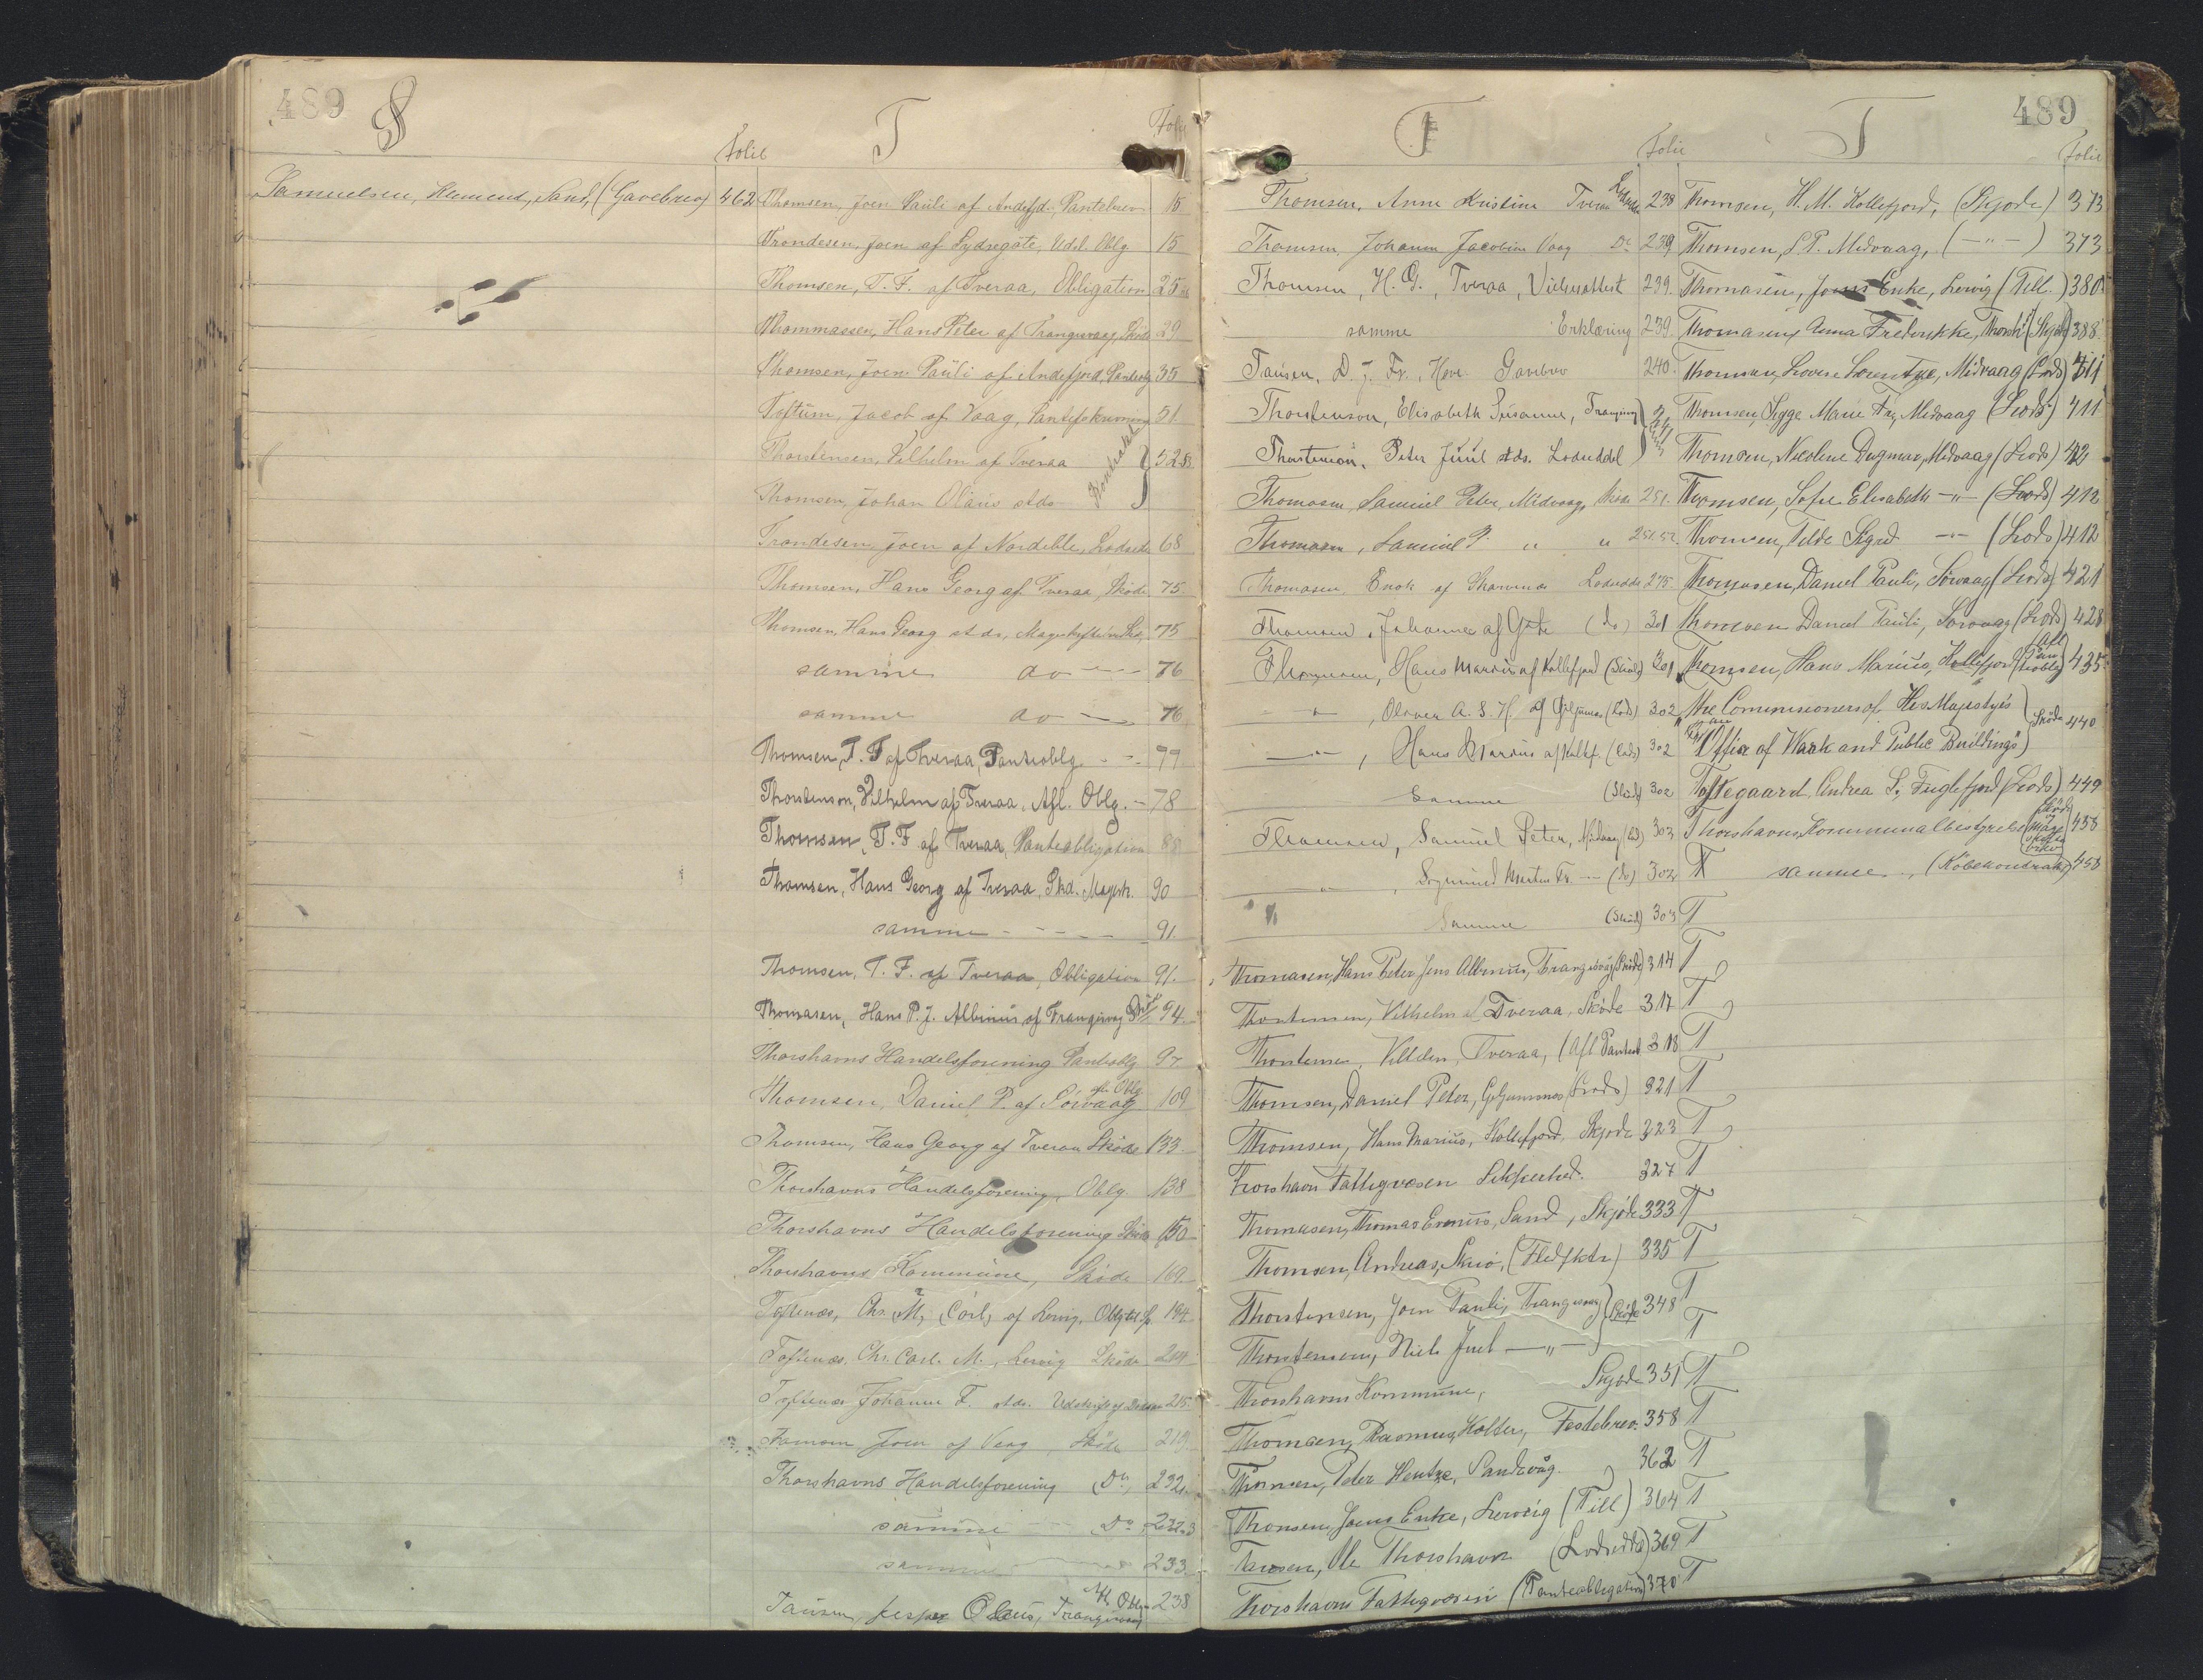 489
S
Folie
Samuelsen, Klemend, Sand, (Gavebrev) 462
T
Folie
Thomsen, Joen Pauli af Andefjd., Pantebrev 15
Trondesen, Joen af Sydregøte, Udl. Oblg 15
Thomsen, T. F. af Tveraa, Obligation 25
Thommassen, Hans Peter af Trangisvaag, Skøde 29
Thomsen, Joen Pauli af Andefjord, Panteoblg 35
Toftum, Jacob af Vaag, 51
Thorstensen, Vilhelm af Tveraa } Kontrakt 52
Thomsen, Johan Olaus stds
Trondesen, Joen af Nordeble, Lodsedl 68
Thomsen, Hans Georg af Tveraa, Skøde 75.
Thomsen, Hans Georg st ds, Mageskifte 75
samme do 76
samme do 76
Thomsen, T. F. af Tveraa, Panteoblg. 77
Thorstenson, Vilhelm af Tveraa, Afl. Oblg. 78
Thomsen, T. F. af Tveraa, Panteobligation 88
Thomsen, Hans Georg af Tveraa, Skd. Magesk. 90
samme 91
Thomsen, T. F. af Tveraa, Obligation 91.
Thomasen, Hans P. J. Albinus af Trangisvaag 94.
Thorshavns Handelsforening Panteoblg 97
Thomsen, Daniel P. af Sörvaag afl. Oblg 109
Thomsen, Hans Georg af Tveraa Skøde 133.
Thorshavns Handelsforening, Oblg. 138
Thorshavns Handelsforening Skøde 150
Thorshavns Kommune, Skøde 169.
Toftenæs, Chr. M, Carl, af Lervig, Oblg til 194
Toftenæs, Chr. Carl. M., Lervig Skøde 214
Toftenæs Johanne F. stds. Udskrift af 215.
Joen af Vaag, Skøde 219.
Thorshavns Handelsforening Do, 232.
samme Do 232-3
samme 233
Tausen, Jesper Olaus, Trangisvaag Afl Oblg 238
T
Folie
Thomsen, Anne Kristine Tveraa 238
Thomsen, Johanne Jacobine Vaag Do 239
Thomsen, H. G., Tveraa, Vielsesattest 239.
samme Erklæring 239.
Tausen, D. J. Fr., Hove Gavebrev 240.
Thorstenson, Elisabeth Susanne,
Thorstenson, Peter Juul stds. Lodseddel
Thomasen, Samuel Peter, Midvaag, Skøde 251.
Thomasen, Samuel P. " " 251.52.
Thomasen, Enok af Skarvenæs Lodsedde 275.
Thomsen, Johannes af Gøte (do) 301
Thomsen, Hans Marius af Kollefjord (Skøde) 301
" , Oliver A. S. H. af Gjljumnæs (Lods) 302
" , Hans Marius af Kollef. (Lods) 302
Samme (Skøde) 302
Thomsen, Samuel Peter, Midvaag (Ld) 303
" , Sigmund Morten Fr. (do) 303
" Samme (Skøde) 303
Thomasen, Hans Peter Jens Albinus, Trangisvåg (Skøde) 314
Thorstensen, Vilhelm af Tveraa, Skøde 317
Thorstensen, Tveraa, (Afl Panteob 318
Thomsen, Daniel Peter, Gjljumnæs (Lods) 321
Thomsen, Hans Marius, Kollefjord, Skjøde 323
Thorshavns Fattigvæsen Sikkerhed. 327
Thomasen, Thomas Evenius, Sand, Skjøde 333
Thomsen, Andreas, Skuö, 335
Thorstensen, Joen Pauli, Trangisvaag } Skøde 348
Thorstensen, Niels Juel — " —
Thorshavns Kommune, Skjøde 351
Thomsen, Rasmus, Kolter, Festebrev. 358
Thomsen, Peter Hentze, Sandvåg. 362
Thomsen, Joens Enke, Lervig (Till) 364
Tausen, Ole Thorshavn (Lodseddel) 369
Thorshavns Fattigvæsen (Panteobligation) 370
T
489
Folie
Thomsen, H. M. Kollefjord, (Skjøde) 373
Thomsen, S P. Midvaag, (— " —) 373
Thomasens, Joens Enke, Lervig (Till.) 380
Thomasens Anna Frederikke, Thorsh. (Skjøde) 388
Thomsen, Lovise Lorentze, Midvaag (Lods) 411
Thomsen, Sigge Marie Fr, Midvaag (Lods) 411
Thomsen, Nicoline Dagmar, Midvaag (Lods) 412
Thomsen, Sofie Elisabeth — " — (Lods) 412
Thomsen, Tilde Sigrid — " — (Lods) 412
Thomsen, Daniel Pauli, Sörvaag (Lods) 421
Thomsen Daniel Pauli, Sorvaag (Lods) 428
Thomsen, Hans Marius, Kollefjord (Afl Panteoblg) 435
The Commisioners of His Majesty's } Skøde 440
Office of Work and Public Buildings
Toftegaard, Andrea S, Fuglefjord (Lods) 449
Thorshavns Kommunalbestyrelse 458
T samme, (Købekontrakt) 458